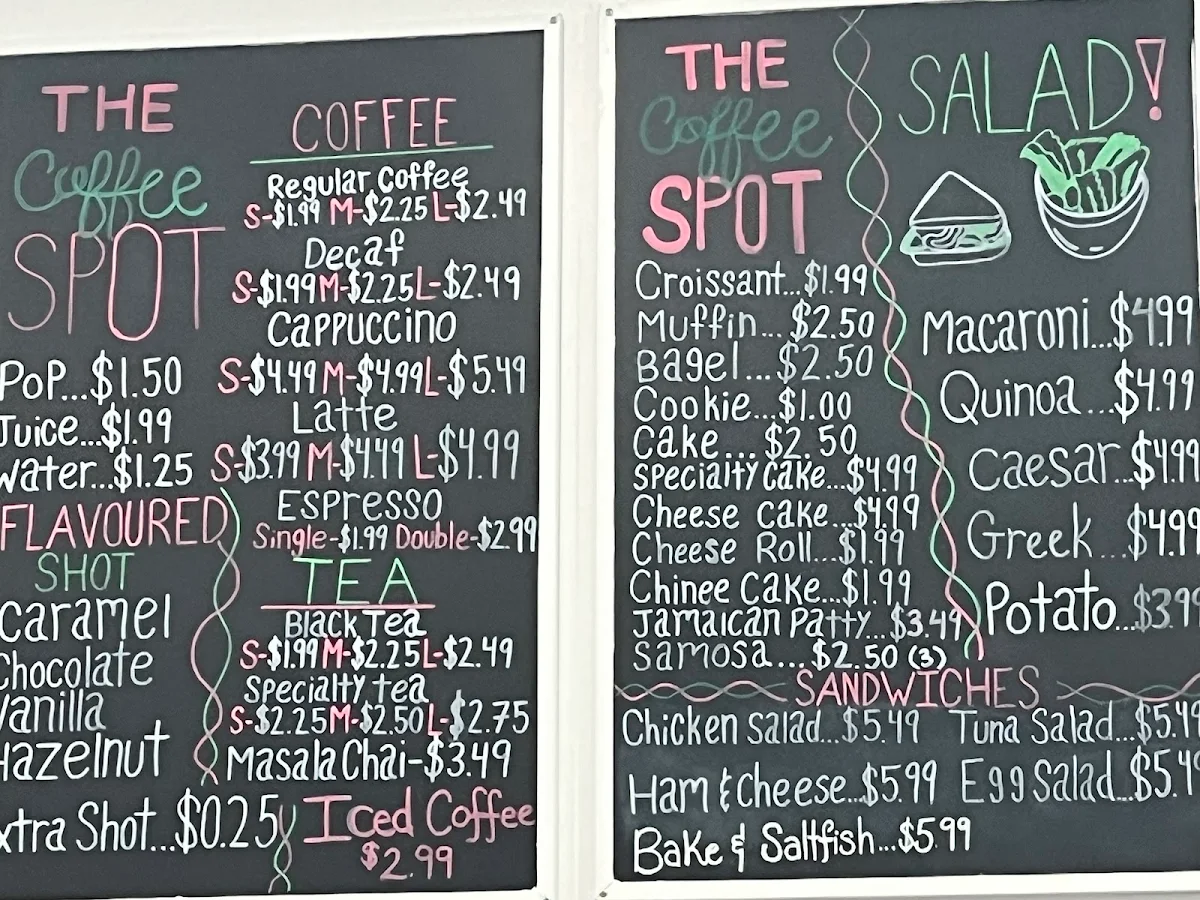 THE
Coffee
SPOT
PoP...$1.50
Juice...$1.99
Water...$1.25
FLAVOURED
SHOT
Caramel
Chocolate
Vanilla
Hazelnut
xtra Shot...$0.25
COFFEE
Regular Coffee
S-$1.99 M-$2.25 L-$2.49
Decaf
S-$1.99 M-$2.25 L-$2.49
CAPPUCCINO
S-$4.49 M-$4.99 L-$5.49
Latte
S-$3.99 M-$4.49 L-$4.99
ESPRESSO
Single-$1.99 Double-$2.99
TEA
Black Tea
S-$1.99 M-$2.25 L-$2.49
Specialty tea
S-$2.25 M-$2.50 L-$2.75
Masala Chai-$3.49
Iced Coffee
$2.99
THE
Coffee
SPOT
Croissant...$1.99
Muffin...$2.50
Bagel...$2.50
Cookie...$1.00
Cake...$2.50
Specialty Cake...$4.99
Cheese Cake...$4.99
Cheese Roll...$1.99
Chinee Cake...$1.99
Jamaican Patty...$3.49
Samosa...$2.50 (3)
SALAD!
Macaroni...$4.99
Quinoa...$4.99
Caesar...$4.99
Greek...$4.99
Potato...$3.99
SANDWICHES
Chicken Salad...$5.49 Tuna Salad...$5.49
Ham & Cheese...$5.99 Egg Salad...$5.49
Bake & Saltfish...$5.99